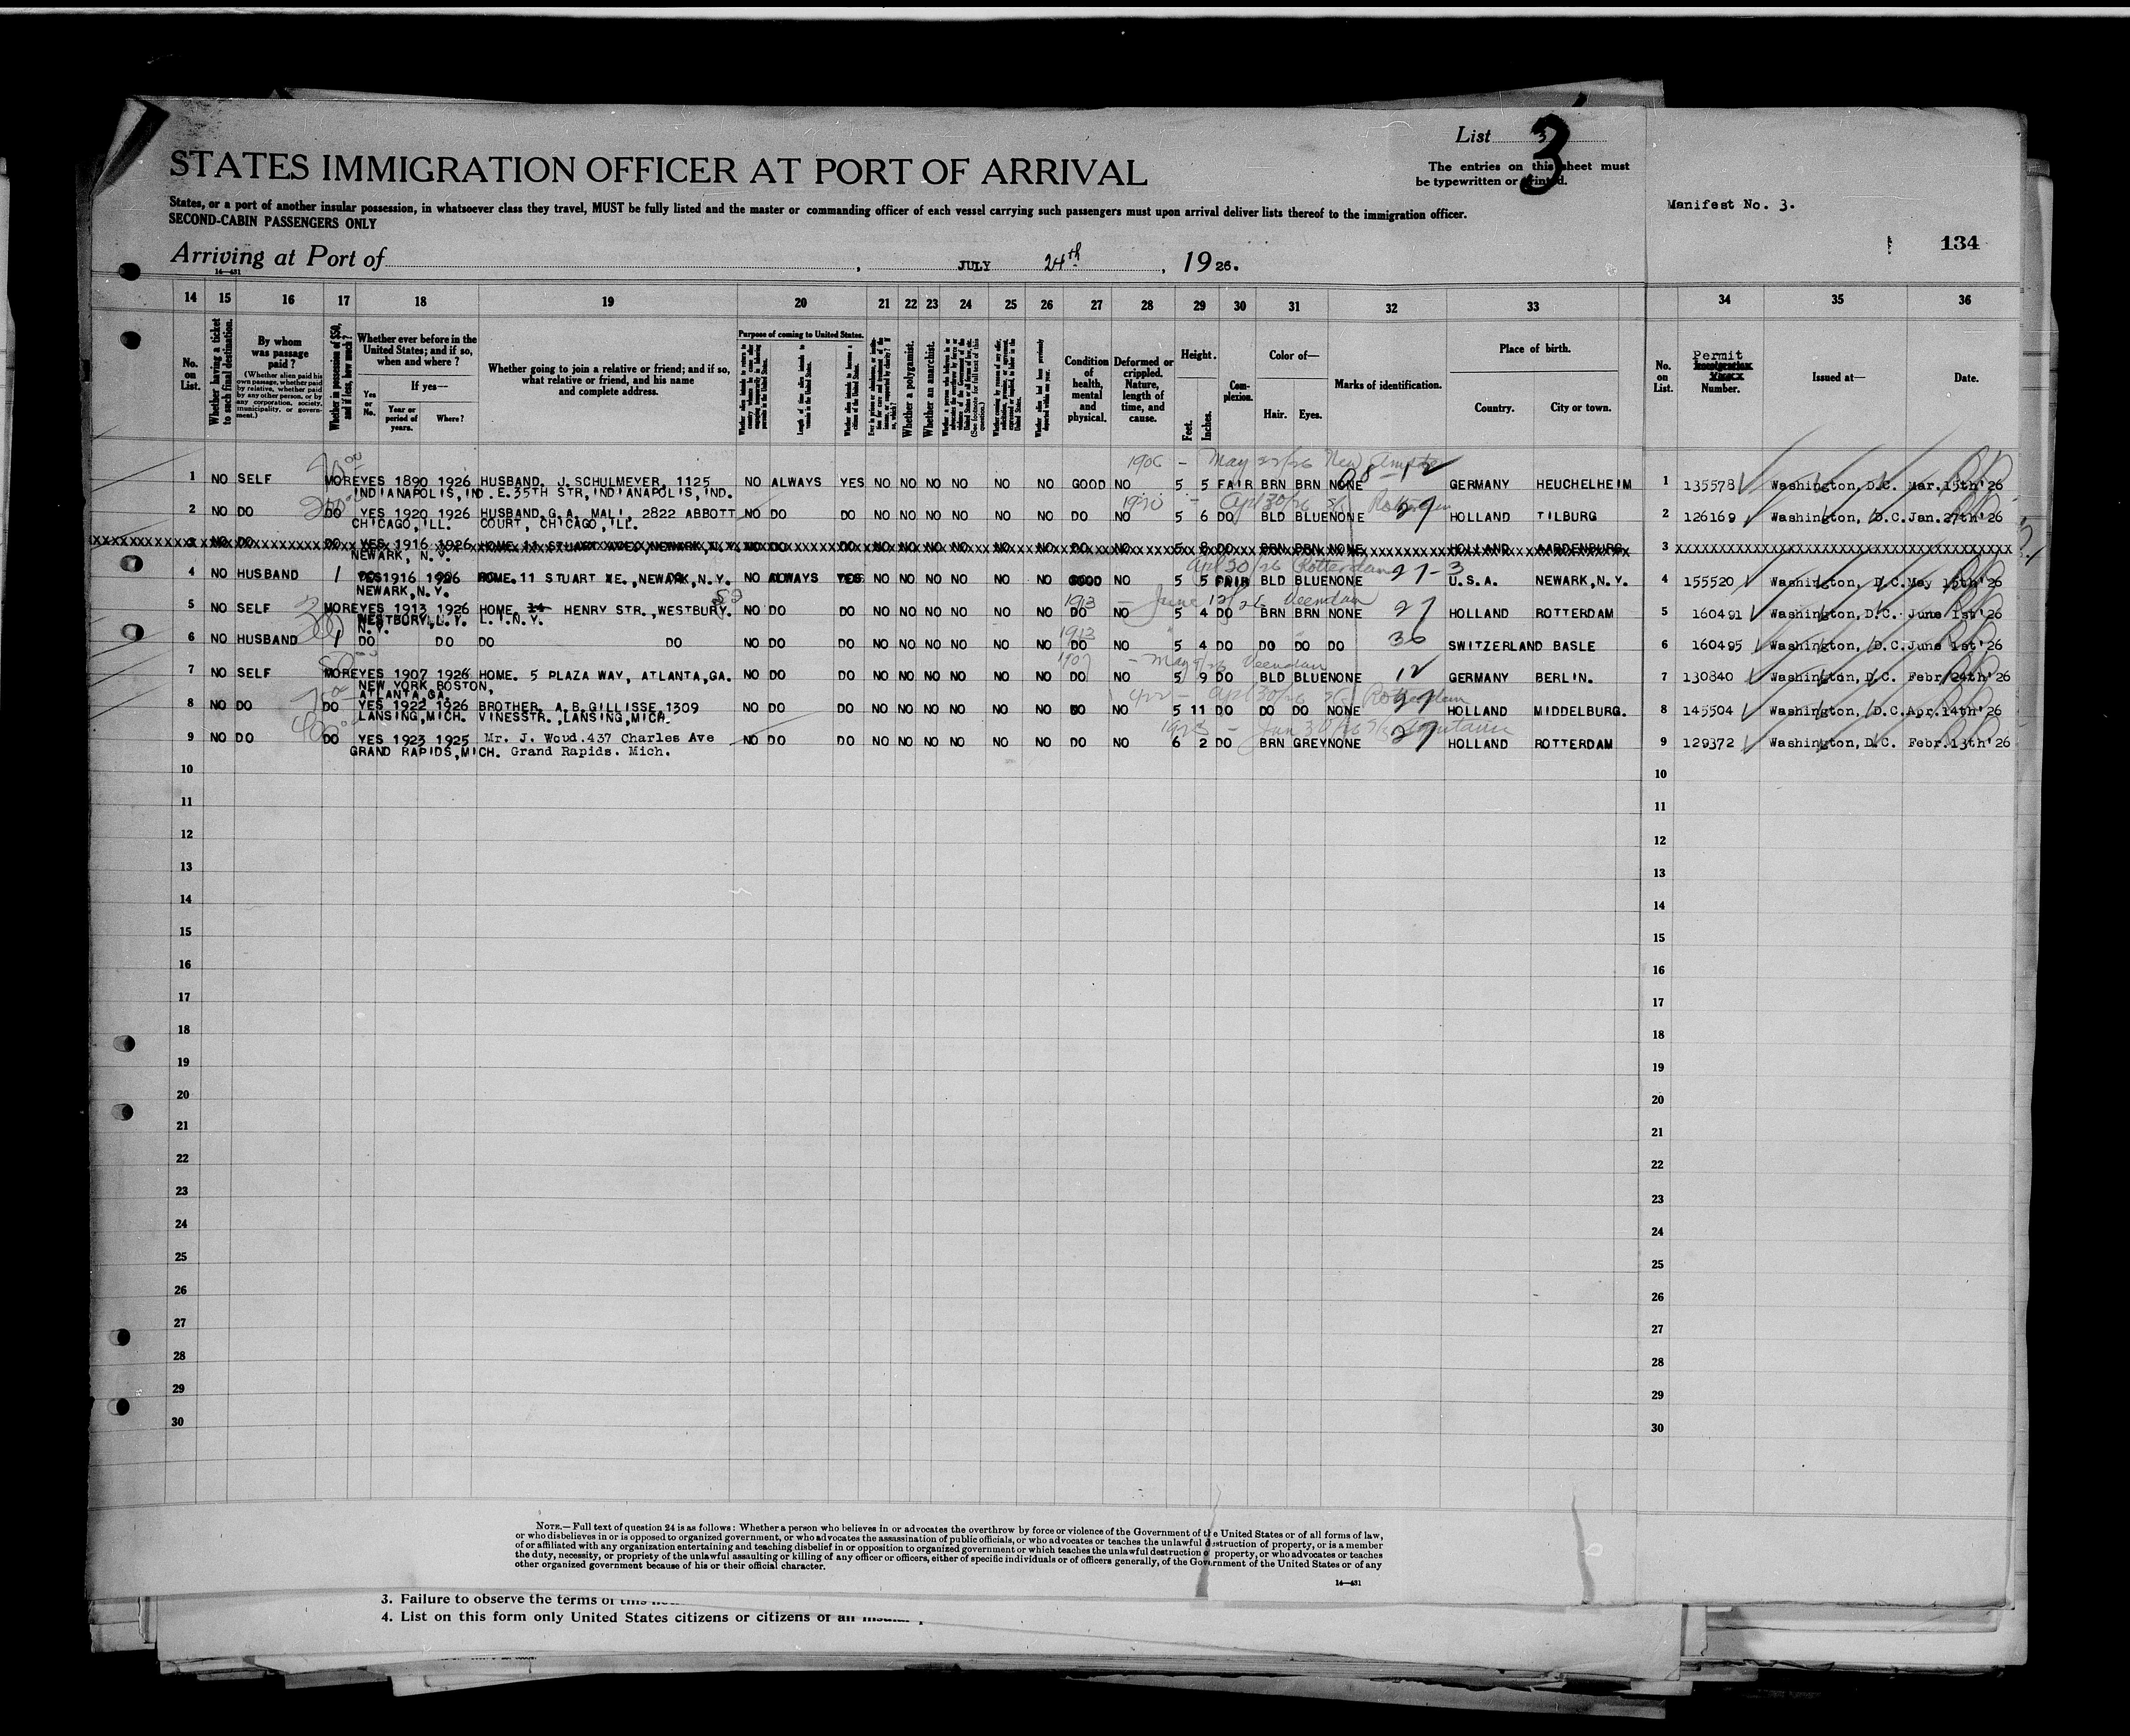 List 3
3
STATES IMMIGRATION OFFICER AT PORT OF ARRIVAL
The entries on this sheet must
be typewritten or printed.
States, or a port of another insular possession, in whatsoever class they travel, MUST be fully listed and the master or commanding officer of each vessel carrying such passengers must upon arrival deliver lists thereof to the immigration officer.
SECOND-CABIN PASSENGERS ONLY
Manifest No. 3.
134
Arriving at Port of , JULY 24th , 1926.
14—431
14 15 16 17 18 19 20 21 22 23 24 25 26 27 28 29 30 31 32 33 34 35 36
No. on List.
Whether having a ticket to such final destination.
By whom was passage paid?
(Whether alien paid his own passage, whether paid by relative, whether paid by any other person, or by any corporation, society, municipality, or government.)
Whether in possession of $50, and if less, how much?
Whether ever before in the United States; and if so, when and where?
Yes or No.
If yes—
Year or period of years.
Where?
Whether going to join a relative or friend; and if so, what relative or friend, and his name and complete address.
Purpose of coming to United States.
Whether a polygamist.
Whether an anarchist.
Condition of health, mental and physical.
Deformed or crippled. Nature, length of time, and cause.
Height.
Feet.
Inches.
Complexion.
Color of—
Hair. Eyes.
Marks of identification.
Place of birth.
Country. City or town.
No. on List.
Permit
Number.
Issued at—
Date.
1906 - May 22/26 New Amstdm
1 NO SELF MORE YES 1890 1926 HUSBAND. J. SCHULMEYER, 1125 NO ALWAYS YES NO NO NO NO NO NO GOOD NO 5 5 FAIR BRN BRN NONE GERMANY HEUCHELHEIM 1 135578 Washington, D.C. Mar. 15th'26
INDIANAPOLIS, IND. E. 35TH STR, INDIANAPOLIS, IND.
1920 - Apl 30/26 S/S Rotterdam
2 NO DO DO YES 1920 1926 HUSBAND G.A. MALI, 2822 ABBOTT NO DO DO NO NO NO NO NO NO DO NO 5 6 DO BLD BLUE NONE 27 HOLLAND TILBURG 2 126169 Washington, D.C. Jan. 27th'26
CHICAGO, ILL. COURT, CHICAGO, ILL.
3 NO DO DO YES 1916 1926 HOME 11 STUART AVE, NEWARK, N.Y. NO DO DO NO NO NO NO NO NO DO NO 5 8 DO BRN BRN NONE HOLLAND AARDENBURG 3 XXXXXXXXXXXXXXXXXXXXXXXXXXXXXXXXXX
NEWARK, N.Y.
Apl 30/26 Rotterdam
4 NO HUSBAND 1 YES 1916 1926 HOME. 11 STUART AVE., NEWARK, N.Y. NO ALWAYS YES NO NO NO NO NO NO GOOD NO 5 5 FAIR BLD BLUE NONE 27-3 U.S.A. NEWARK, N.Y. 4 155520 Washington, D.C. May 15th'26
NEWARK, N.Y.
1913 - June 12/26 Veendam
5 NO SELF MORE YES 1913 1926 HOME. 14 HENRY STR., WESTBURY. NO DO DO NO NO NO NO NO NO DO NO 5 4 DO BRN BRN NONE 27 HOLLAND ROTTERDAM 5 160491 Washington, D.C. June 1st'26
WESTBURY, L.I. L.I. N.Y.
N.Y.
1913
6 NO HUSBAND 1 DO DO DO DO NO DO DO NO NO NO NO NO NO DO NO 5 4 DO DO DO DO 36 SWITZERLAND BASLE 6 160495 Washington, D.C. June 1st'26
1907 - May 9/26 Veendam
7 NO SELF MORE YES 1907 1926 HOME. 5 PLAZA WAY, ATLANTA, GA. NO DO DO NO NO NO NO NO NO DO NO 5 9 DO BLD BLUE NONE 12 GERMANY BERLIN. 7 130840 Washington, D.C. Febr. 24th'26
NEW YORK BOSTON,
ATLANTA, GA.
922 - Apl 30/26 S/S Rotterdam
8 NO DO DO YES 1922 1926 BROTHER. A.B. GILLISSE, 1309 NO DO DO NO NO NO NO NO NO DO NO 5 11 DO DO DO NONE 27 HOLLAND MIDDELBURG. 8 145504 Washington, D.C. Apr. 14th'26
LANSING, MICH. VINESSTR., LANSING, MICH.
1923 - Jan 30/26
9 NO DO DO YES 1923 1925 Mr. J. Woud. 437 Charles Ave NO DO DO NO NO NO NO NO NO DO NO 6 2 DO BRN GREY NONE 27 HOLLAND ROTTERDAM 9 129372 Washington, D.C. Febr. 13th'26
GRAND RAPIDS, MICH. Grand Rapids. Mich.
10 10
11 11
12 12
13 13
14 14
15 15
16 16
17 17
18 18
19 19
20 20
21 21
22 22
23 23
24 24
25 25
26 26
27 27
28 28
29 29
30 30
NOTE.—Full text of question 24 is as follows: Whether a person who believes in or advocates the overthrow by force or violence of the Government of the United States or of all forms of law,
or who disbelieves in or is opposed to organized government, or who advocates the assassination of public officials, or who advocates or teaches the unlawful destruction of property, or is a member
of or affiliated with any organization entertaining and teaching disbelief in or opposition to organized government or which teaches the unlawful destruction of property, or who advocates or teaches
the duty, necessity, or propriety of the unlawful assaulting or killing of any officer or officers, either of specific individuals or of officers generally, of the Government of the United States or of any
other organized government because of his or their official character.
14—431
3. Failure to observe the terms of this
4. List on this form only United States citizens or citizens of an